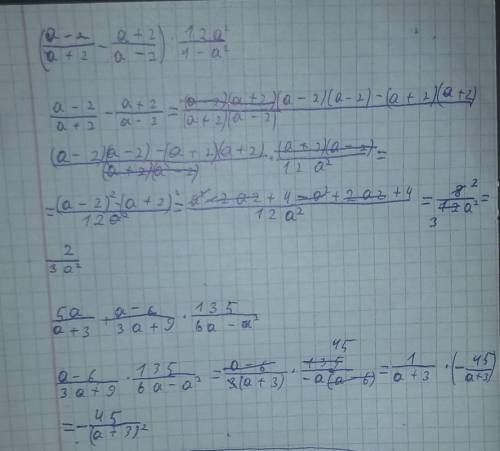 (a-2/a+2 - a+2/a-2) · 12a²/4-a²
a-2/a+2 - a+2/a-2 = (a-2)(a+2)(a-2)(a-2)-(a+2)(a+2)/(a+2)(a-2)
(a-2)(a-2)-(a+2)(a+2)/(a+2)(a-2) · (a+2)(a-2)/12a² =
= (a-2)²-(a+2)²/12a² = a²-2a2+4-a²+2a2+4/12a² = 8 2/12a² 3 =
2/3a²
5a/a+3 + a-6/3a+9 · 135/6a-a²
a-6/3a+9 · 135/6a-a² = a-6/3(a+3) · 135 45/-a(a-6) = 1/a+3 · (-45/a+3)
= -45/(a+3)²